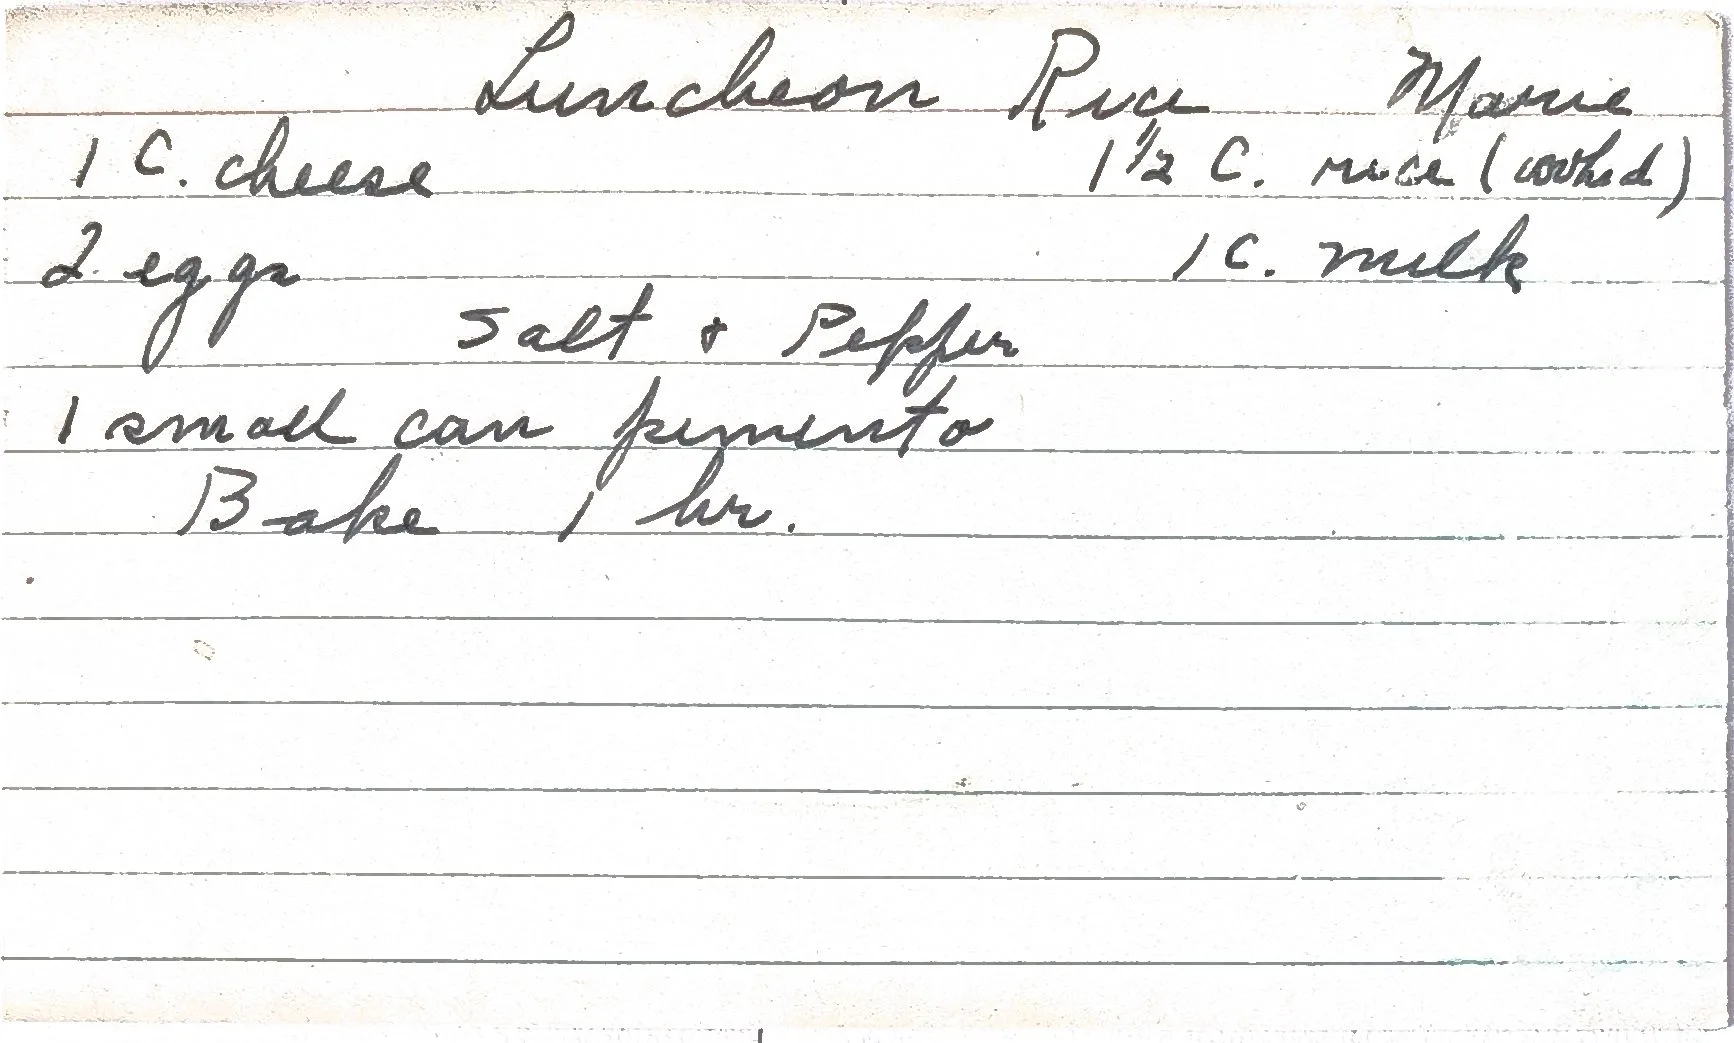 Luncheon Rice Marie
1 C. cheese 1 1/2 C. rice (cooked)
2 eggs 1 C. milk
Salt + Pepper
1 small can pimento
Bake 1 hr.